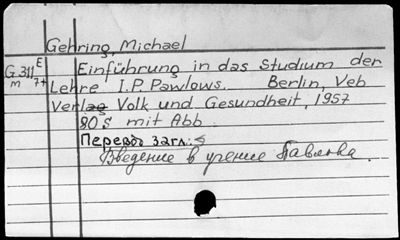 Gehring, Michael
G 311 E Einführung in das Studium der
m 7+ Lehre I.P. Pawlows. Berlin, Veb
Verlag Volk und Gesundheit, 1957
80 s mit Abb.
Перевод загл.:
Введение в учение Павлова.